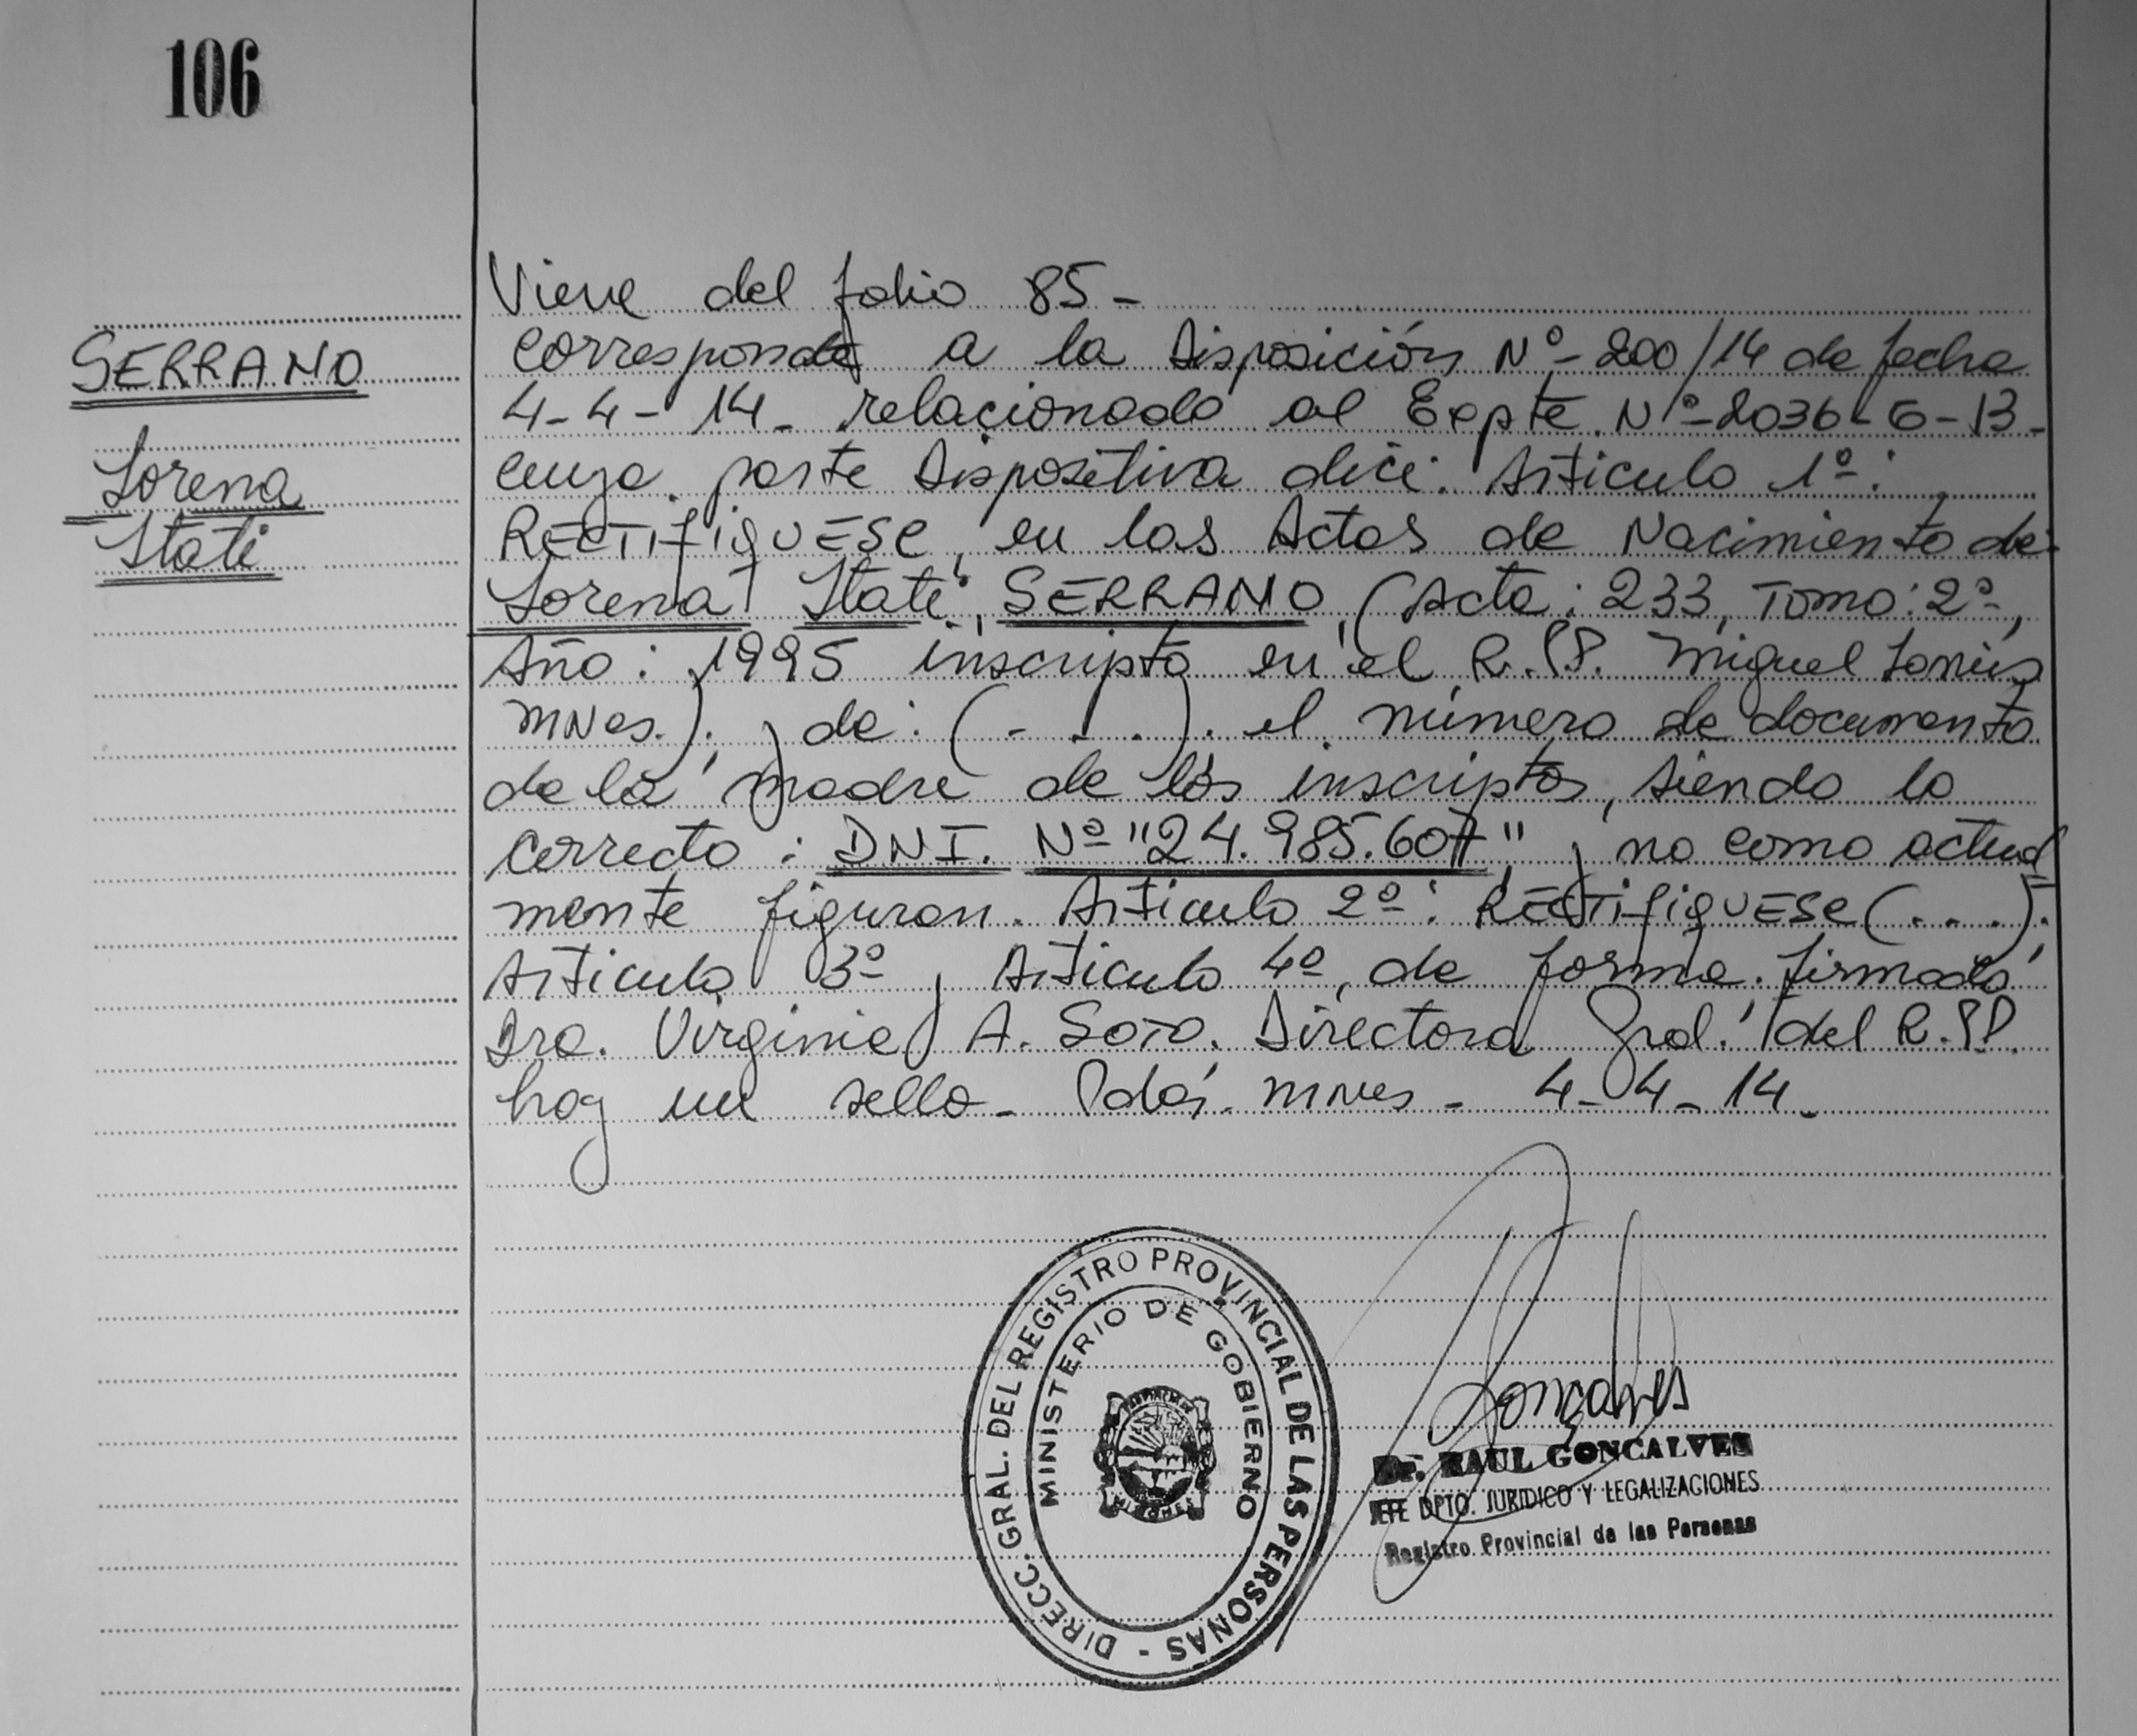 106
Viene del folio 85-
SERRANO
corresponde a la Disposición Nº-200/14 de fecha
4-4-14- relacionado al Expte. Nº-2036-G-13-
Lorena
cuya parte Dispositiva dice: Articulo 1º:
Itati
RECTIFIQUESE, en las Actas de Nacimiento de:
Lorena Itati, SERRANO (Acta: 233, Tomo: 2º,
Año: 1995 inscripta en el R.P.P. Miguel
Mnes.); y de: (. . .). el número de documento
de la madre de los inscriptos, siendo lo
correcto: DNI. Nº "24.985.607", y no como actual
mente figuran. Articulo 2º: RECTIFIQUESE (. . . .).
Articulo 3º y Articulo 4º, de forma. firmado
Dra. Virginia A. Soto. Directora Gral. del R.P.P.
hay un sello- Pdas. Mnes- 4-4-14-
DIRECC. GRAL. DEL REGISTRO PROVINCIAL DE LAS PERSONAS -
MINISTERIO DE GOBIERNO
MISIONES
Goncalves
Dr. RAUL GONCALVES
JEFE DPTO. JURIDICO Y LEGALIZACIONES
Registro Provincial de las Personas